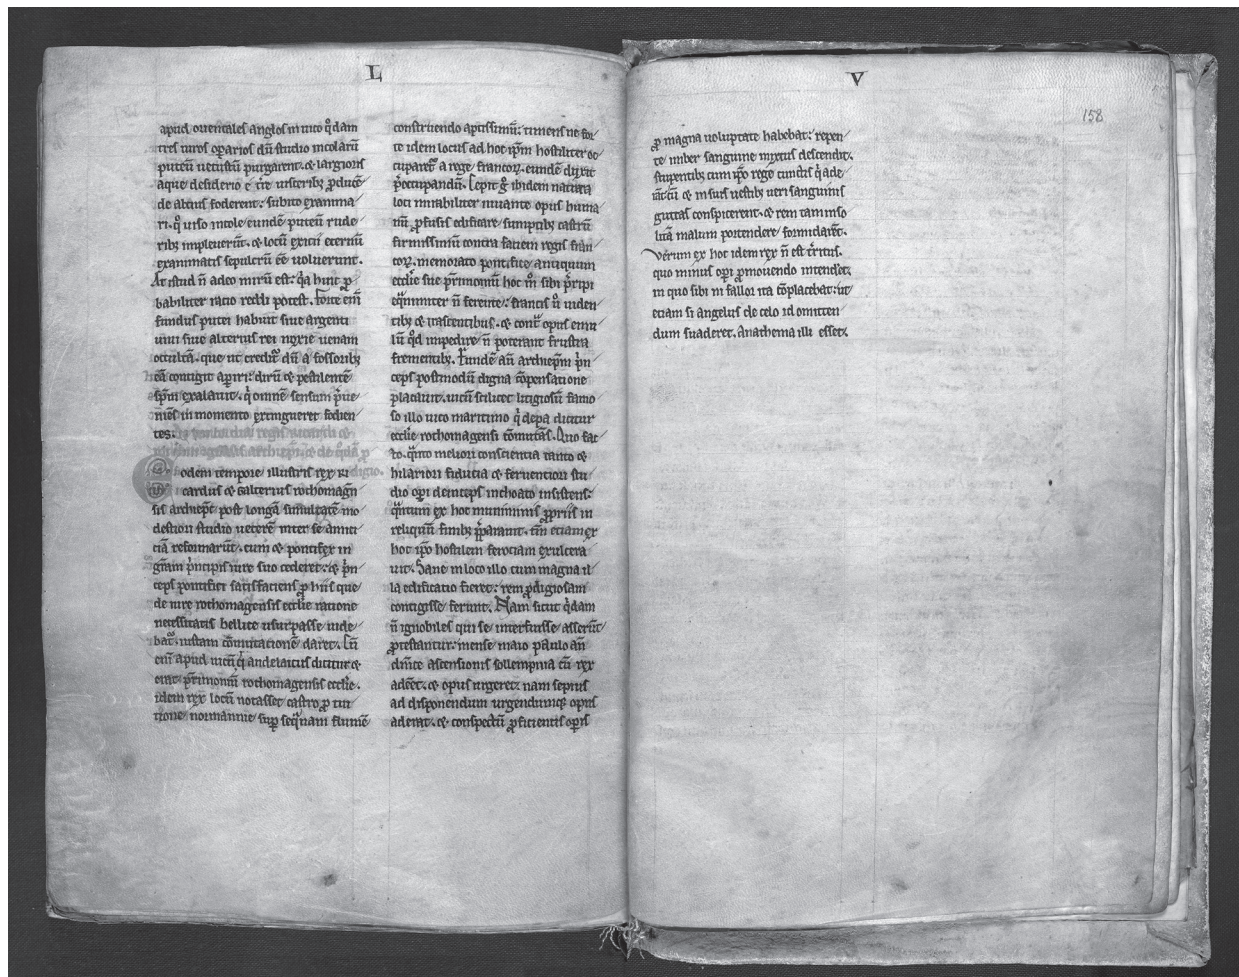 L
apud orientales anglos in uico q̇dam
tres uiros oꝑarios dū studio incolaꝝ
puteū uetustū purgarent. ⁊ largioris
aque desiderio e tr̄e uisceribꝫ ꝓducēde
de altius foderent: subito exanimari.
ri. q̇ uiso incole eundē puteū ruderibꝫ
ribꝫ impleuer̄t. ⁊ locū exicii eternū
exanimatis sepulcrū ēē uoluerunt.
At istud n̄ adeo mirū est. q̄a hinc ꝓ
babiliter ratio reddi potest. Forte eni̅
fundus putei habuit siue argenti
uiui siue alterius rei noxie uenam
occultā. que ut credit̄ dū a fossoribꝫ
eā contigit apīri: dirū ⁊ pestilentē
sp̄m exalauit. q̇ omnē sensum p̄ue
niēs in momento extingueret fodien
tes.
Eodem tempore illustris rex ri
cardus ⁊ Galterius rothomagn̄
sis archiep̄c post longā simultatē mo
destiori studio ueterē inter se amici
ciā reformar̄t. cum ⁊ pontifex in
gr̄am p̄ncipis iure suo cederet: ⁊ p̄n
ceps pontifici satisfaciens ꝓ hiis que
de iure rothomagensis eccl̄ie ratione
necessitatis bellice usurpasse uide
bat̄. iustam cōmutationē daret. Cū
eni̅ apud uicū q̇ andelaicus dicitur ⁊
erat p̄rimoniū rothomagensis eccl̄ie.
idem rex locū notasset castro ꝓ tui
tione normannie suꝑ seq̄nam flumē
construendo aptissimū: timens ne for
te idem locus ad hoc ip̄m hostiliter oc
cuparet̄ a rege francoꝝ. eundē duxit
p̄occupandū. Cepit g̊ ibidem natura
loci mirabiliter iuuante opus huma
nū. ꝓfusis edificare sumptibꝫ castrū
firmissimū contra faciem regis fran
coꝝ. memorato pontifice antiquum
eccl̄ie sue p̄rimoniū hoc m̊ sibi p̄ripi
eq̄nimiter n̄ ferente: francis u̇ uiden
tibꝫ ⁊ irascentibus. ⁊ cont̄ opus emu
lū q̇d impedire n̄ poterant frustra
frementibꝫ. Eundē aū archiep̄m p̄n
ceps postmodū digna cōpensatione
placauit. uicū scilicet litigiosū famo
so illo uico maritimo q̇ depa dicitur
eccl̄ie rothomagensi cōmutās. Quo fac
to. q̄nto meliori consciencia tanto ⁊
hilariori fiducia ⁊ feruentiori stu
dio oꝑi deinceps inchoato insistens:
q̄ntum ex hoc muniminis ꝓpriis in
reliquū finibꝫ p̄parauit. tn̄m etiam ex
hoc ip̄o hostilem ferociam exulcera
uit. Sane in loco illo cum magna il
la edificatio fieret: rem ꝓdigiosam
contigisse ferunt. Nam sicut q̇dam
n̄ ignobiles qui se interfuisse asserūt
ꝓtestantur: mense maio paulo an̄
dn̄ice ascensionis sollempnia cū rex
adēēt. ⁊ opus urgeret: nam sepius
ad disponendum urgendumqꝫ opus
aderat. ⁊ conspectū ꝓficientis oꝑis
V
158
ꝓ magna uoluptate habebat: repen
te imber sanguine mixtus descendit.
stupentibꝫ cum ip̄o rege cunctis q̇ ade
rāt: cū ⁊ in suis uestibꝫ ueri sanguinis
guttas conspicerent. ⁊ rem tam inso
litā malum portendere formidarēt.
Verum ex hoc idem rex n̄ est t̄ritus.
quo minus oꝑi ꝓmouendo intenderet.
in quo sibi ni fallor ita cōplacebat: ut
etiam si angelus de celo id omitten
dum suaderet. anathema illi esset.